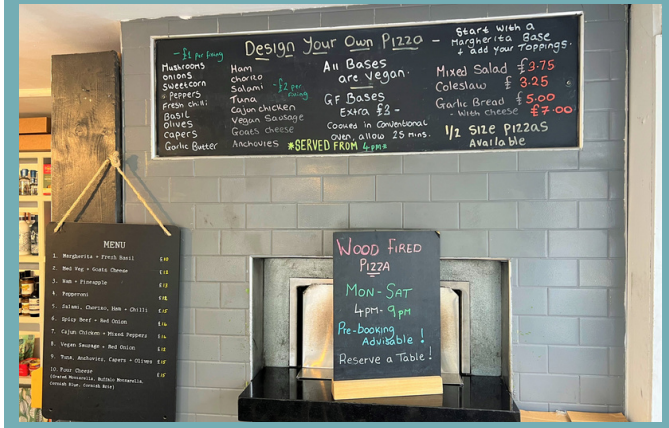 Design Your Own Pizza -
Start with a
Margherita Base
+ add your Toppings.
- £1 per topping
Mushrooms
onions
Sweetcorn
Peppers
Fresh chilli
Basil
olives
Capers
Garlic Butter
Ham
chorizo
Salami
Tuna
Cajun chicken
Vegan Sausage
Goats cheese
Anchovies
- £2 per
All Bases
are Vegan.
GF Bases
Extra £3 -
Cooked in Conventional
oven, allow 25 mins.
*SERVED FROM 4pm*
Mixed Salad £3.75
Coleslaw £3.25
Garlic Bread £5.00
- With cheese £7.00
1/2 Size Pizzas
Available
MENU
1. Margherita + Fresh Basil
2. Med Veg + Goats Cheese
3. Ham + Pineapple
4. Pepperoni
5. Salami, Chorizo, Ham + Chilli
6. Spicy Beef + Red Onion
7. Cajun Chicken + Mixed Peppers
8. Vegan Sausage + Red Onion
9. Tuna, Anchovies, Capers + Olives
10. Four Cheese
(Grated Mozzarella, Buffalo Mozzarella,
Cornish Blue, Cornish Brie)
WOOD FIRED
PIZZA
MON-SAT
4pm-9pm
Pre-booking
Advisable!
Reserve a Table!